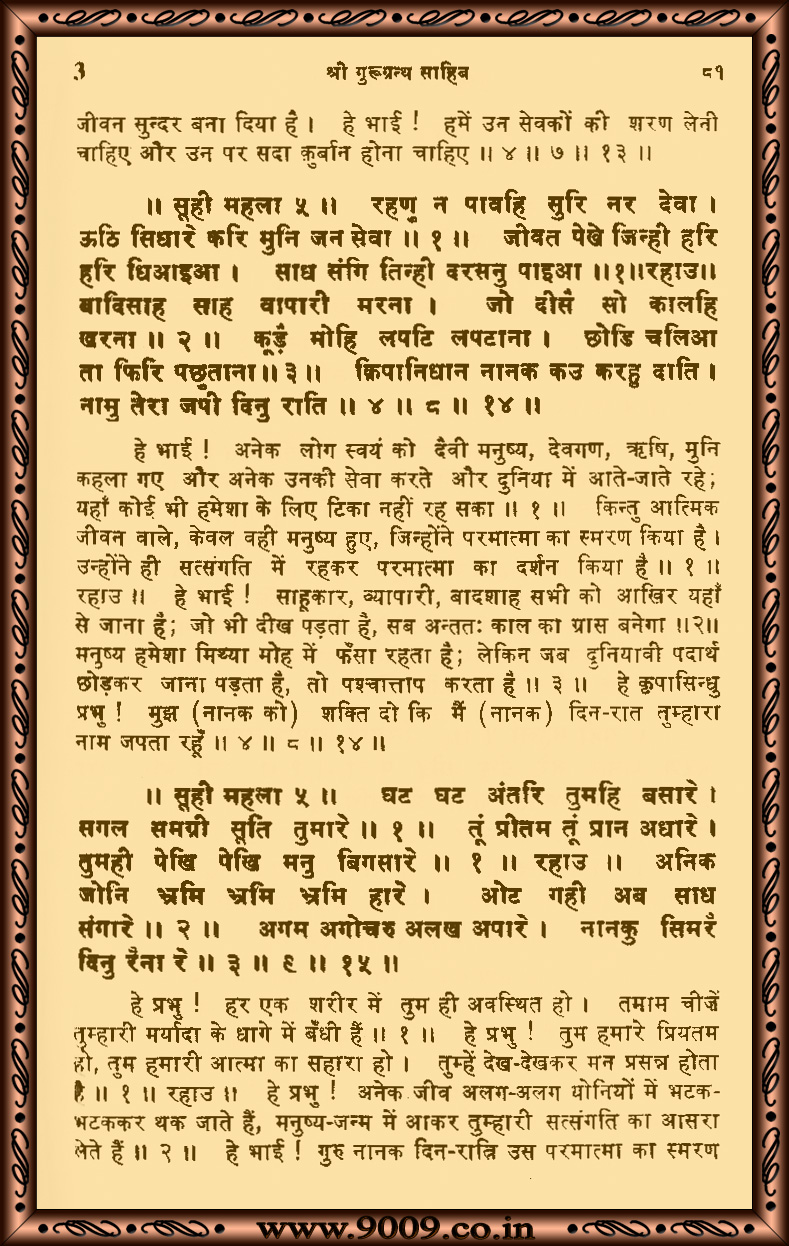 3 श्री गुरूग्रन्थ साहिब ८१
जीवन सुन्दर बना दिया है । हे भाई ! हमें उन सेवकों की शरण लेनी
चाहिए और उन पर सदा क़ुर्बान होना चाहिए ॥ ४ ॥ ७ ॥ १३ ॥
॥ सूही महला ५ ॥ रहणु न पावहि सुरि नर देवा ।
ऊठि सिधारे करि मुनि जन सेवा ॥ १ ॥ जीवत पेखे जिन्ही हरि
हरि धिआइआ । साध संगि तिन्ही दरसनु पाइआ ॥१॥रहाउ॥
बादिसाह साह वापारी मरना । जो दीसै सो कालहि
खरना ॥ २ ॥ कूड़ै मोहि लपटि लपटाना । छोडि चलिआ
ता फिरि पछुताना ॥ ३ ॥ क्रिपानिधान नानक कउ करहु दाति ।
नामु तेरा जपी दिनु राति ॥ ४ ॥ ८ ॥ १४ ॥
हे भाई ! अनेक लोग स्वयं को दैवी मनुष्य, देवगण, ऋषि, मुनि
कहला गए और अनेक उनकी सेवा करते और दुनिया में आते-जाते रहे;
यहाँ कोई भी हमेशा के लिए टिका नहीं रह सका ॥ १ ॥ किन्तु आत्मिक
जीवन वाले, केवल वही मनुष्य हुए, जिन्होंने परमात्मा का स्मरण किया है ।
उन्होंने ही सत्संगति में रहकर परमात्मा का दर्शन किया है ॥ १ ॥
रहाउ ॥ हे भाई ! साहूकार, व्यापारी, बादशाह सभी को आख़िर यहाँ
से जाना है; जो भी दीख पड़ता है, सब अन्ततः काल का ग्रास बनेगा ॥२॥
मनुष्य हमेशा मिथ्या मोह में फँसा रहता है; लेकिन जब दुनियावी पदार्थ
छोड़कर जाना पड़ता है, तो पश्चात्ताप करता है ॥ ३ ॥ हे कृपासिन्धु
प्रभु ! मुझ (नानक को) शक्ति दो कि मैं (नानक) दिन-रात तुम्हारा
नाम जपता रहूँ ॥ ४ ॥ ८ ॥ १४ ॥
॥ सूही महला ५ ॥ घट घट अंतरि तुमहि बसारे ।
सगल समग्री सूति तुमारे ॥ १ ॥ तूं प्रीतम तूं प्रान अधारे ।
तुमही पेखि पेखि मनु बिगसारे ॥ १ ॥ रहाउ ॥ अनिक
जोनि भ्रमि भ्रमि भ्रमि हारे । ओट गही अब साध
संगारे ॥ २ ॥ अगम अगोचरु अलख अपारे । नानकु सिमरै
दिनु रैना रे ॥ ३ ॥ ९ ॥ १५ ॥
हे प्रभु ! हर एक शरीर में तुम ही अवस्थित हो । तमाम चीजें
तुम्हारी मर्यादा के धागे में बँधी हैं ॥ १ ॥ हे प्रभु ! तुम हमारे प्रियतम
हो, तुम हमारी आत्मा का सहारा हो । तुम्हें देख-देखकर मन प्रसन्न होता
है ॥ १ ॥ रहाउ ॥ हे प्रभु ! अनेक जीव अलग-अलग योनियों में भटक-
भटककर थक जाते हैं, मनुष्य-जन्म में आकर तुम्हारी सत्संगति का आसरा
लेते हैं ॥ २ ॥ हे भाई ! गुरु नानक दिन-रात्रि उस परमात्मा का स्मरण
www.9009.co.in